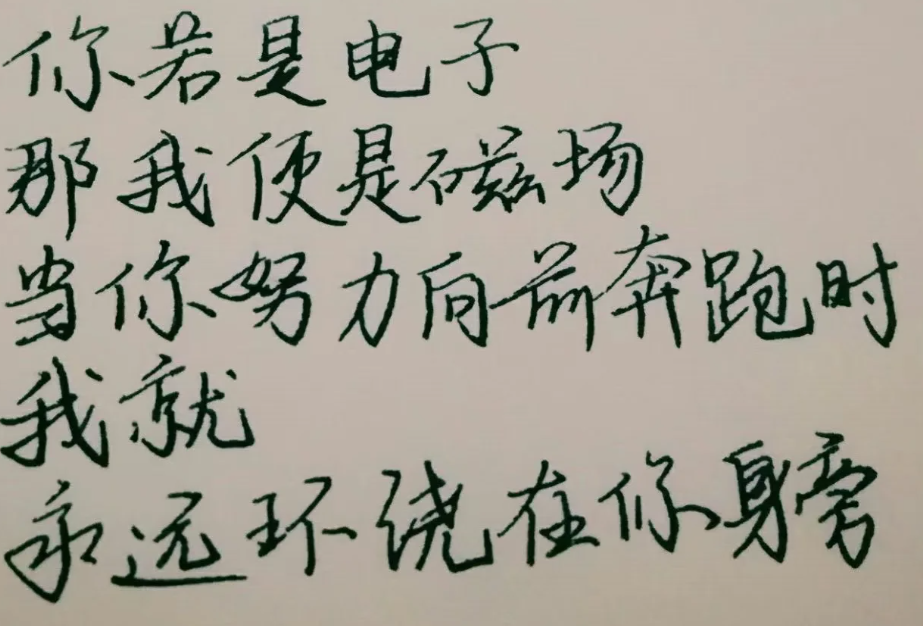 你若是电子
那我便是磁场
当你努力向前奔跑时
我就
永远环绕在你身旁